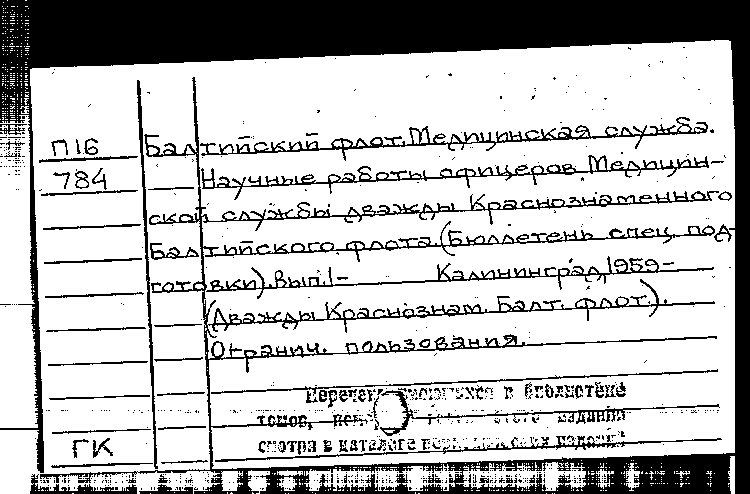 П16 Балтийский флот. Медицинская служба.
784 Научные работы офицеров Медицин-
ской службы дважды Краснознаменного
Балтийского флота. (Бюллетень спец. под-
готовки). Вып. 1- Калининград, 1959-
(Дважды Краснознам. Балт. флот.).
Огранич. пользования.
Перечень имеющихся в библиотеке
томов, этого издания
смотри в каталоге изданий
ГК